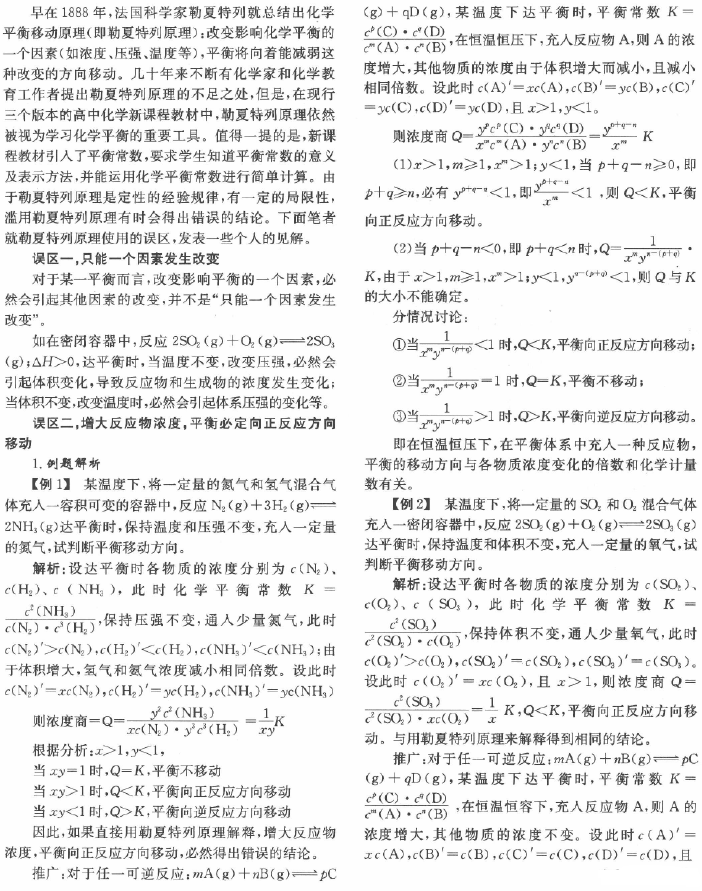 早在 1888 年,法国科学家勒夏特列就总结出化学
平衡移动原理(即勒夏特列原理):改变影响化学平衡的
一个因素(如浓度、压强、温度等),平衡将向着能减弱这
种改变的方向移动。几十年来不断有化学家和化学教
育工作者提出勒夏特列原理的不足之处,但是,在现行
三个版本的高中化学新课程教材中,勒夏特列原理依然
被视为学习化学平衡的重要工具。值得一提的是,新课
程教材引入了平衡常数,要求学生知道平衡常数的意义
及表示方法,并能运用化学平衡常数进行简单计算。由
于勒夏特列原理是定性的经验规律,有一定的局限性,
滥用勒夏特列原理有时会得出错误的结论。下面笔者
就勒夏特列原理使用的误区,发表一些个人的见解。
误区一,只能一个因素发生改变
对于某一平衡而言,改变影响平衡的一个因素,必
然会引起其他因素的改变,并不是“只能一个因素发生
改变”。
如在密闭容器中,反应 2SO₂(g)+O₂(g)⇌2SO₃
(g);△H>0,达平衡时,当温度不变,改变压强,必然会
引起体积变化,导致反应物和生成物的浓度发生变化;
当体积不变,改变温度时,必然会引起体系压强的变化等。
误区二,增大反应物浓度,平衡必定向正反应方向
移动
1. 例题解析
【例 1】 某温度下,将一定量的氮气和氢气混合气
体充入一容积可变的容器中,反应 N₂(g)+3H₂(g)⇌
2NH₃(g)达平衡时,保持温度和压强不变,充入一定量
的氮气,试判断平衡移动方向。
解析:设达平衡时各物质的浓度分别为 c(N₂)、
c(H₂)、c(NH₃),此时化学平衡常数 K=
c²(NH₃)/(c(N₂)·c³(H₂)),保持压强不变,通入少量氮气,此时
c(N₂)′>c(N₂),c(H₂)′<c(H₂),c(NH₃)′<c(NH₃);由
于体积增大,氢气和氨气浓度减小相同倍数。设此时
c(N₂)′=xc(N₂),c(H₂)′=yc(H₂),c(NH₃)′=yc(NH₃)
则浓度商=Q=y²c²(NH₃)/(xc(N₂)·y³c³(H₂))=(1/xy)K
根据分析:x>1,y<1,
当 xy=1 时,Q=K,平衡不移动
当 xy>1 时,Q<K,平衡向正反应方向移动
当 xy<1 时,Q>K,平衡向逆反应方向移动
因此,如果直接用勒夏特列原理解释,增大反应物
浓度,平衡向正反应方向移动,必然得出错误的结论。
推广:对于任一可逆反应:mA(g)+nB(g)⇌pC
(g)+qD(g),某温度下达平衡时,平衡常数 K=
cᵖ(C)·c^q(D)/(cᵐ(A)·cⁿ(B)),在恒温恒压下,充入反应物 A,则 A 的浓
度增大,其他物质的浓度由于体积增大而减小,且减小
相同倍数。设此时 c(A)′=xc(A),c(B)′=yc(B),c(C)′
=yc(C),c(D)′=yc(D),且 x>1,y<1。
则浓度商 Q=yᵖcᵖ(C)·y^qc^q(D)/(xᵐcᵐ(A)·yⁿcⁿ(B))=(y^(p+q-n)/xᵐ)K
(1)x>1,m≥1,xᵐ>1;y<1,当 p+q-n≥0,即
p+q≥n,必有 y^(p+q-n)<1,即 y^(p+q-n)/xᵐ<1,则 Q<K,平衡
向正反应方向移动。
(2)当 p+q-n<0,即 p+q<n 时,Q=1/(xᵐy^(n-(p+q)))·
K,由于 x>1,m≥1,xᵐ>1;y<1,y^(n-(p+q))<1,则 Q 与 K
的大小不能确定。
分情况讨论:
①当 1/(xᵐy^(n-(p+q)))<1 时,Q<K,平衡向正反应方向移动;
②当 1/(xᵐy^(n-(p+q)))=1 时,Q=K,平衡不移动;
③当 1/(xᵐy^(n-(p+q)))>1 时,Q>K,平衡向逆反应方向移动。
即在恒温恒压下,在平衡体系中充入一种反应物,
平衡的移动方向与各物质浓度变化的倍数和化学计量
数有关。
【例 2】 某温度下,将一定量的 SO₂ 和 O₂ 混合气体
充入一密闭容器中,反应 2SO₂(g)+O₂(g)⇌2SO₃(g)
达平衡时,保持温度和体积不变,充入一定量的氧气,试
判断平衡移动方向。
解析:设达平衡时各物质的浓度分别为 c(SO₂)、
c(O₂)、c(SO₃),此时化学平衡常数 K=
c²(SO₃)/(c²(SO₂)·c(O₂)),保持体积不变,通入少量氧气,此时
c(O₂)′>c(O₂),c(SO₂)′=c(SO₂),c(SO₃)′=c(SO₃)。
设此时 c(O₂)′=xc(O₂),且 x>1,则浓度商 Q=
c²(SO₃)/(c²(SO₂)·xc(O₂))=(1/x)K,Q<K,平衡向正反应方向移
动。与用勒夏特列原理来解释得到相同的结论。
推广:对于任一可逆反应:mA(g)+nB(g)⇌pC
(g)+qD(g),某温度下达平衡时,平衡常数 K=
cᵖ(C)·c^q(D)/(cᵐ(A)·cⁿ(B)),在恒温恒容下,充入反应物 A,则 A 的
浓度增大,其他物质的浓度不变。设此时 c(A)′=
xc(A),c(B)′=c(B),c(C)′=c(C),c(D)′=c(D),且